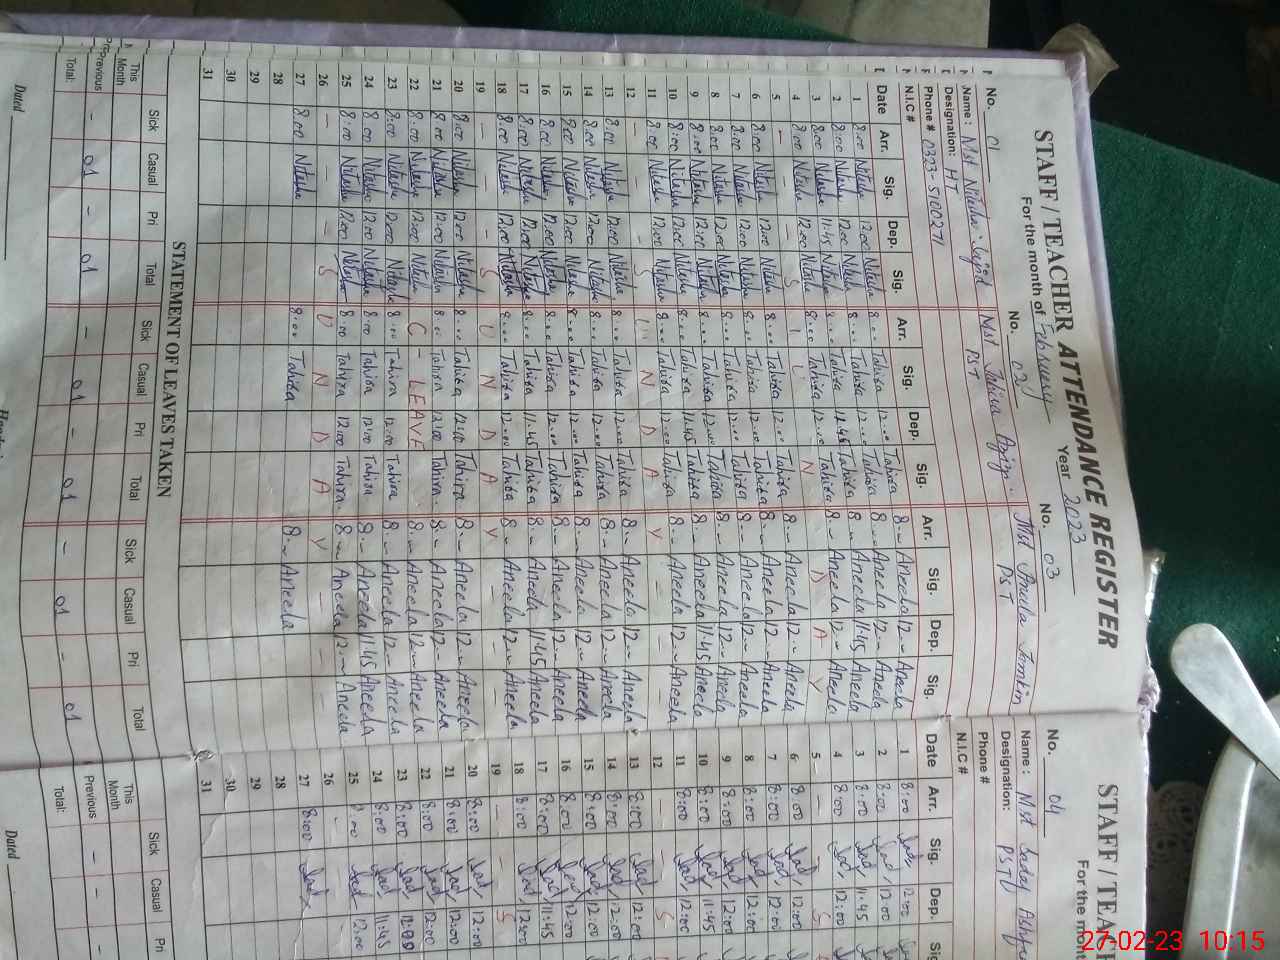 STAFF / TEACHER ATTENDANCE REGISTER
For the month of February Year 2023
No. 01 No. 02 No. 03
Name : Mst Nitasha Mst Tahira Mst Aneela
Designation: HT PST PST
Phone # 0323-5100271
N.I.C #
Date Arr. Sig. Dep. Sig. Arr. Sig. Dep. Sig. Arr. Sig. Dep. Sig.
1 8:00 Nitasha 12:00 Nitasha 8:00 Tahira 12:00 Tahira 8 Aneela 12 Aneela
2 8:00 Nitasha 12:00 Nitasha 8 Tahira 12 Tahira 8 Aneela 12 Aneela
3 8:00 Nitasha 11:45 Nitasha Tahira 11:45 Tahira 8 Aneela 11:45 Aneela
4 8:00 Nitasha 12:00 Nitasha 8:00 Tahira 12:00 Tahira 8 Aneela 12 Aneela
5 - - - S U N D A Y
6 8:00 Nitasha 12:00 Nitasha 8:00 Tahira 12:00 Tahira 8 Aneela 12 Aneela
7 8:00 Nitasha 12:00 Nitasha 8:00 Tahira 12:00 Tahira 8 Aneela 12 Aneela
8 8:00 Nitasha 12:00 Nitasha 8:00 Tahira 12:00 Tahira 8 Aneela 12 Aneela
9 8:00 Nitasha 12:00 Nitasha 8:00 Tahira 12:00 Tahira 8 Aneela 12 Aneela
10 8:00 Nitasha 12:00 Nitasha 8:00 Tahira 11:45 Tahira 8 Aneela 11:45 Aneela
11 8:00 Nitasha 12:00 Nitasha 8:00 Tahira 12:00 Tahira 8 Aneela 12 Aneela
12 - - - S U N D A Y - -
13 8:00 Nitasha 12:00 Nitasha 8:00 Tahira 12:00 Tahira 8 Aneela 12 Aneela
14 8:00 Nitasha 12:00 Nitasha 8:00 Tahira 12:00 Tahira 8 Aneela 12 Aneela
15 8:00 Nitasha 12:00 Nitasha 8:00 Tahira 12:00 Tahira 8 Aneela 12 Aneela
16 8:00 Nitasha 12:00 Nitasha 8:00 Tahira 12:00 Tahira 8 Aneela 12 Aneela
17 8:00 Nitasha 12:00 Nitasha 8:00 Tahira 11:45 Tahira 8 Aneela 11:45 Aneela
18 8:00 Nitasha 12:00 Nitasha 8:00 Tahira 12:00 Tahira 8 Aneela 12 Aneela
19 - - - S U N D A Y - -
20 8:00 Nitasha 12:00 Nitasha 8:00 Tahira 12:00 Tahira 8 Aneela 12 Aneela
21 8:00 Nitasha 12:00 Nitasha 8:00 Tahira 12:00 Tahira 8 Aneela 12 Aneela
22 8:00 Nitasha 12:00 Nitasha C - LEAVE 8 Aneela 12 Aneela
23 8:00 Nitasha 12:00 Nitasha 8:00 Tahira 12:00 Tahira 8 Aneela 12 Aneela
24 8:00 Nitasha 12:00 Nitasha 8:00 Tahira 12:00 Tahira 8 Aneela 11:45 Aneela
25 8:00 Nitasha 12:00 Nitasha 8:00 Tahira 12:00 Tahira 8 Aneela 12 Aneela
26 - - - S U N D A Y - -
27 8:00 Nitasha 8:00 Tahira 8 Aneela
28
29
30
31
STATEMENT OF LEAVES TAKEN
Sick Casual Pri Total Sick Casual Pri Total Sick Casual Pri Total
This Month
Previous
Total: - 01 - 01 - 01 - 01 - 01 - 01
Dated
STAFF / TEAC
For the mont
No. 04
Name : Mst Saday
Designation: PST
Phone #
N.I.C #
Date Arr. Sig. Dep. Sig
1 8:00 Sad 12:00
2 8:00 Sad 12:00
3 8:00 Sad 11:45
4 8:00 Sad 12:00
5 - - - S
6 8:00 Sad 12:00
7 8:00 Sad 12:00
8 8:00 Sad 12:00
9 8:00 Sad 12:00
10 8:00 Sad 11:45
11 8:00 Sad 12:00
12 - - - S
13 8:00 Sad 12:00
14 8:00 Sad 12:00
15 8:00 Sad 12:00
16 8:00 Sad 12:00
17 8:00 Sad 11:45
18 8:00 Sad 12:00
19 - - - S
20 8:00 Sad 12:00
21 8:00 Sad 12:00
22 8:00 Sad 12:00
23 8:00 Sad 12:00
24 8:00 Sad 11:45
25 8:00 Sad 12:00
26 -
27 8:00 Sad
28
29
30
31
Sick Casual Pri
This Month
Previous
Total: - - -
Dated
27-02-23 10:15